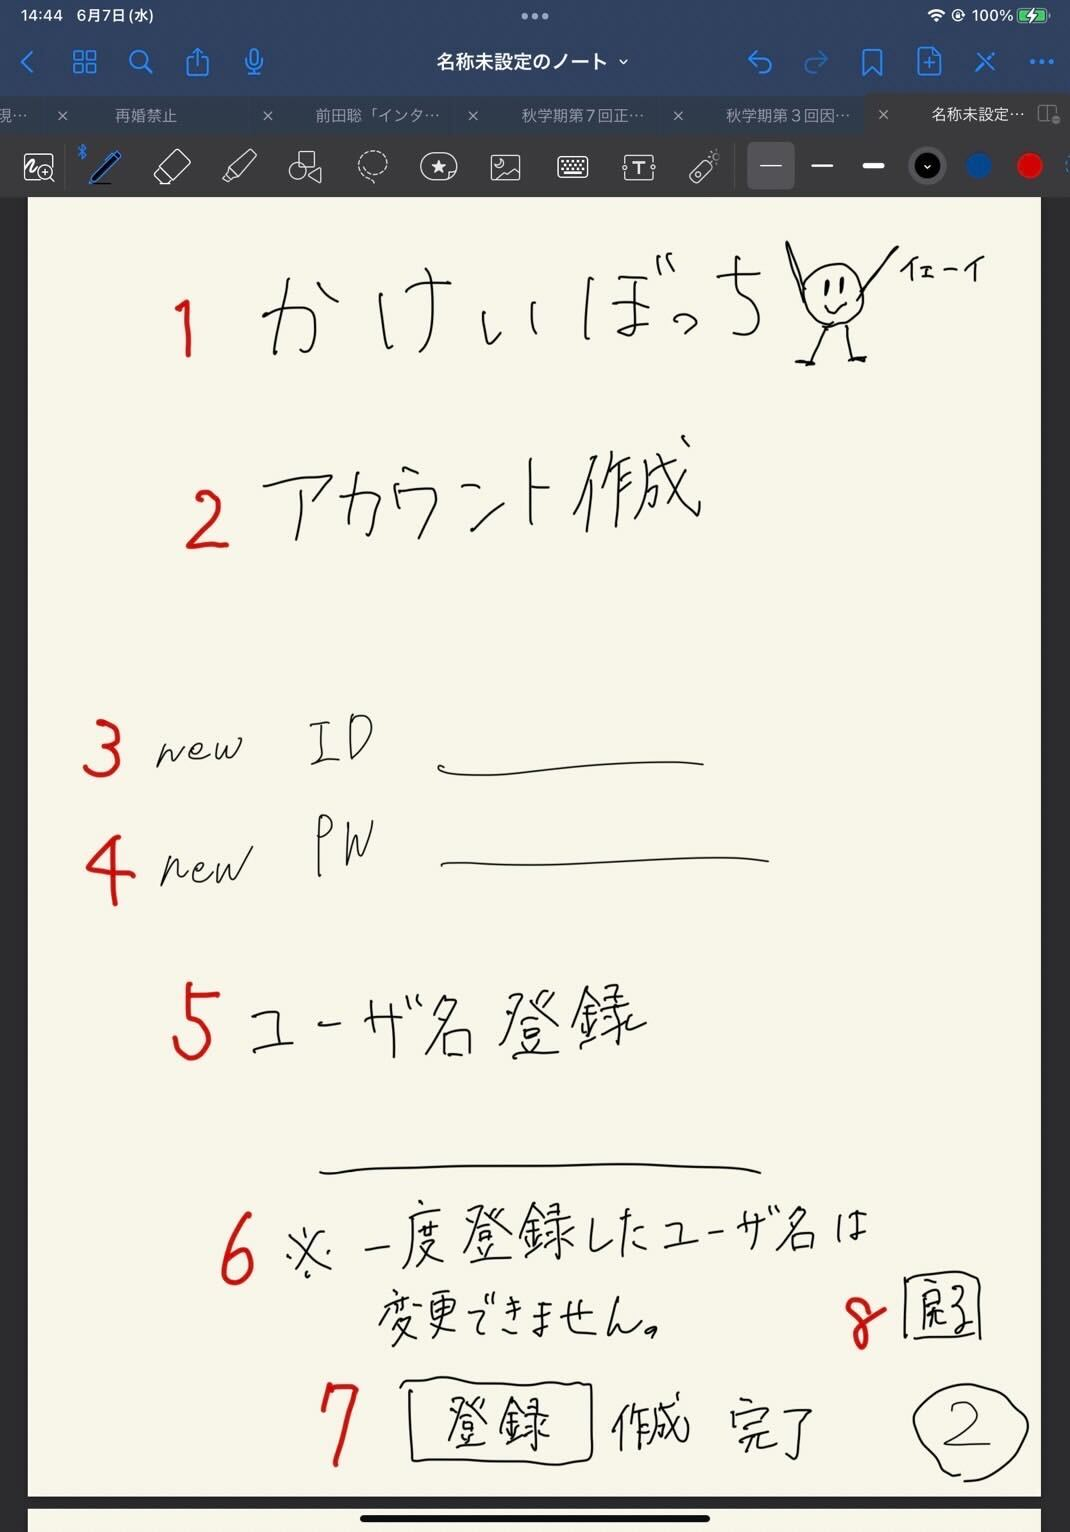 14:44 6月7日(水) 100%
名称未設定のノート
現… 再婚禁止 前田聡「インタ… 秋学期第7回正… 秋学期第3回因… 名称未設定…
1 かけいぼっち イェーイ
2 アカウント作成
3 new ID
4 new PW
5 ユーザ名登録
6 ※一度登録したユーザ名は
変更できません。
8 戻る
7 登録 作成完了
2